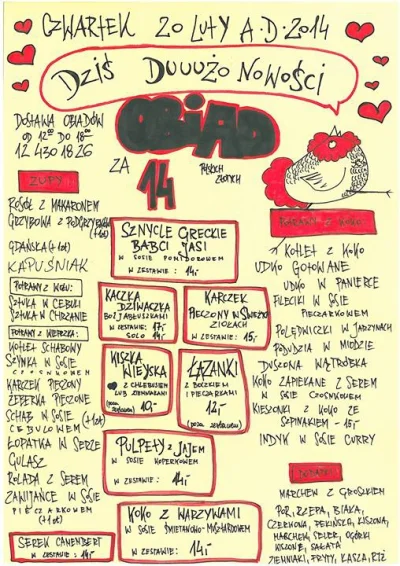 CZWARTEK 20 LUTY A.D. 2014
DZIŚ DUUUŻO NOWOŚCI
DOSTAWA OBIADÓW
OD 12⁰⁰ DO 18⁰⁰
12 430 18 26
OBIAD
ZA 14
ZŁOTYCH
ZUPY
ROSÓŁ Z MAKARONEM
GRZYBOWA Z PODGRZYBKÓW
(+1zł)
GDAŃSKA (+1zł)
KAPUŚNIAK
POTRAWY Z WOŁU:
SZTUKA W CEBULI
SZTUKA W CHRZANIE
POTRAWY Z WIEPRZA:
KOTLET SCHABOWY
SZYNKA W SOSIE
CZOSNKOWYM
KARCZEK PIECZONY
ŻEBERKA PIECZONE
SCHAB W SOSIE (+1zł)
CEBULOWYM
ŁOPATKA W SERZE
GULASZ
ROLADA Z SEREM
ZAWIJAŃCE W SOSIE
PIECZARKOWYM
(+1zł)
SEREK CAMEMBERT
W ZESTAWIE: 14,-
SZNYCLE GRECKIE
BABCI JASI
W SOSIE POMIDOROWYM
W ZESTAWIE: 14,-
KACZKA
DZIWACZKA
BO Z JABŁUSZKAMI
W ZESTAWIE: 17,-
SOLO 14,-
KARCZEK
PIECZONY W ŚWIEŻYCH
ZIOŁACH
W ZESTAWIE: 15,-
KISZKA
WIEJSKA
Z CHLEBUSIEM
LUB ZIEMNIAKAMI
(POZA ZESTAWEM) 10,-
ŁAZANKI
Z BOCZKIEM
I PIECZARKAMI
12,-
(POZA ZESTAWEM)
PULPETY Z JAJEM
W SOSIE KOPERKOWYM
W ZESTAWIE: 14,-
KOKO Z WARZYWAMI
W SOSIE ŚMIETANOWO-MUSZTARDOWYM
W ZESTAWIE: 14,-
POTRAWY Z KOKO:
KOTLET Z KOKO
UDKO GOTOWANE
UDKO W PANIERCE
FILECIKI W SOSIE
PIECZARKOWYM
POLĘDWICZKI W JARZYNACH
PODUDZIA W MIODZIE
DUSZONA WĄTRÓBKA
KOKO ZAPIEKANE Z SEREM
W SOSIE CZOSNKOWYM
KIESZONKI Z KOKO ZE
SZPINAKIEM - 15,-
INDYK W SOSIE CURRY
DODATKI
MARCHEW Z GROSZKIEM
POR, RZEPA, BIAŁA,
CZERWONA, PEKIŃSKA, KISZONA,
MARCHEW, SELER, OGÓRKI
KISZONE, SAŁATA
ZIEMNIAKI, FRYTY, KASZA, RYŻ